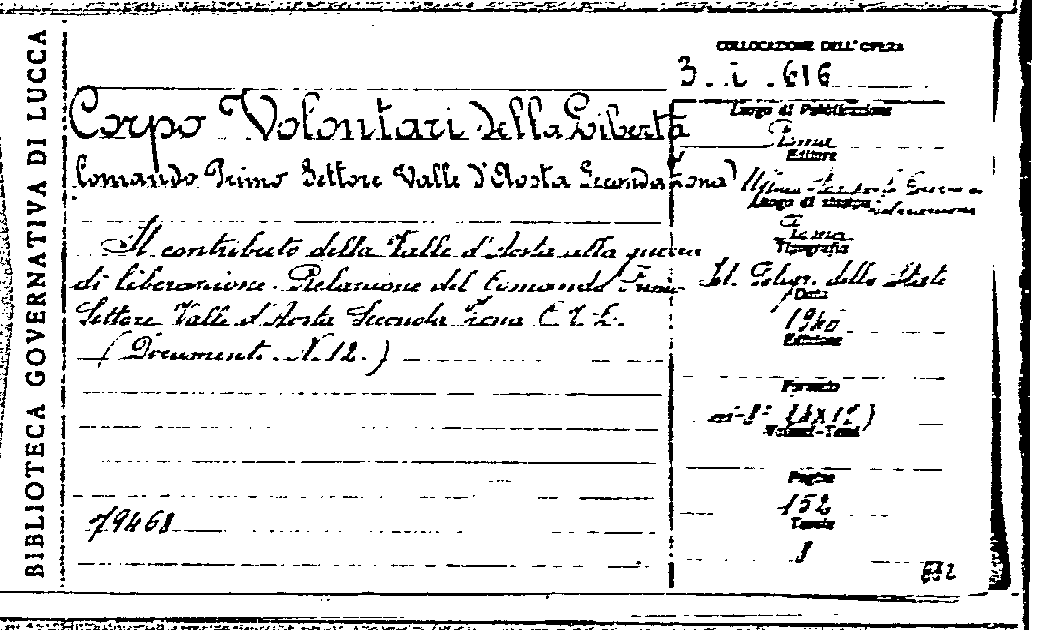 BIBLIOTECA GOVERNATIVA DI LUCCA
COLLOCAZIONE DELL'OPERA
3. i. 616
Corpo Volontari della Libertà
Comando Primo Settore Valle d'Aosta Seconda Zona)
Il contributo della Valle d'Aosta alla guerra
di liberazione. Relazione del Comando Primo
Settore Valle d'Aosta Seconda Zona C.V.L.
(Documenti. N. 12.)
79468
Luogo di Pubblicazione
Roma
Editore
Luogo di stampa
Roma
Tipografia
Ist. Poligr. dello Stato
Data
Edizione
Formato
in-8°
Volumi-Tomi
Pagine
152
Tavole